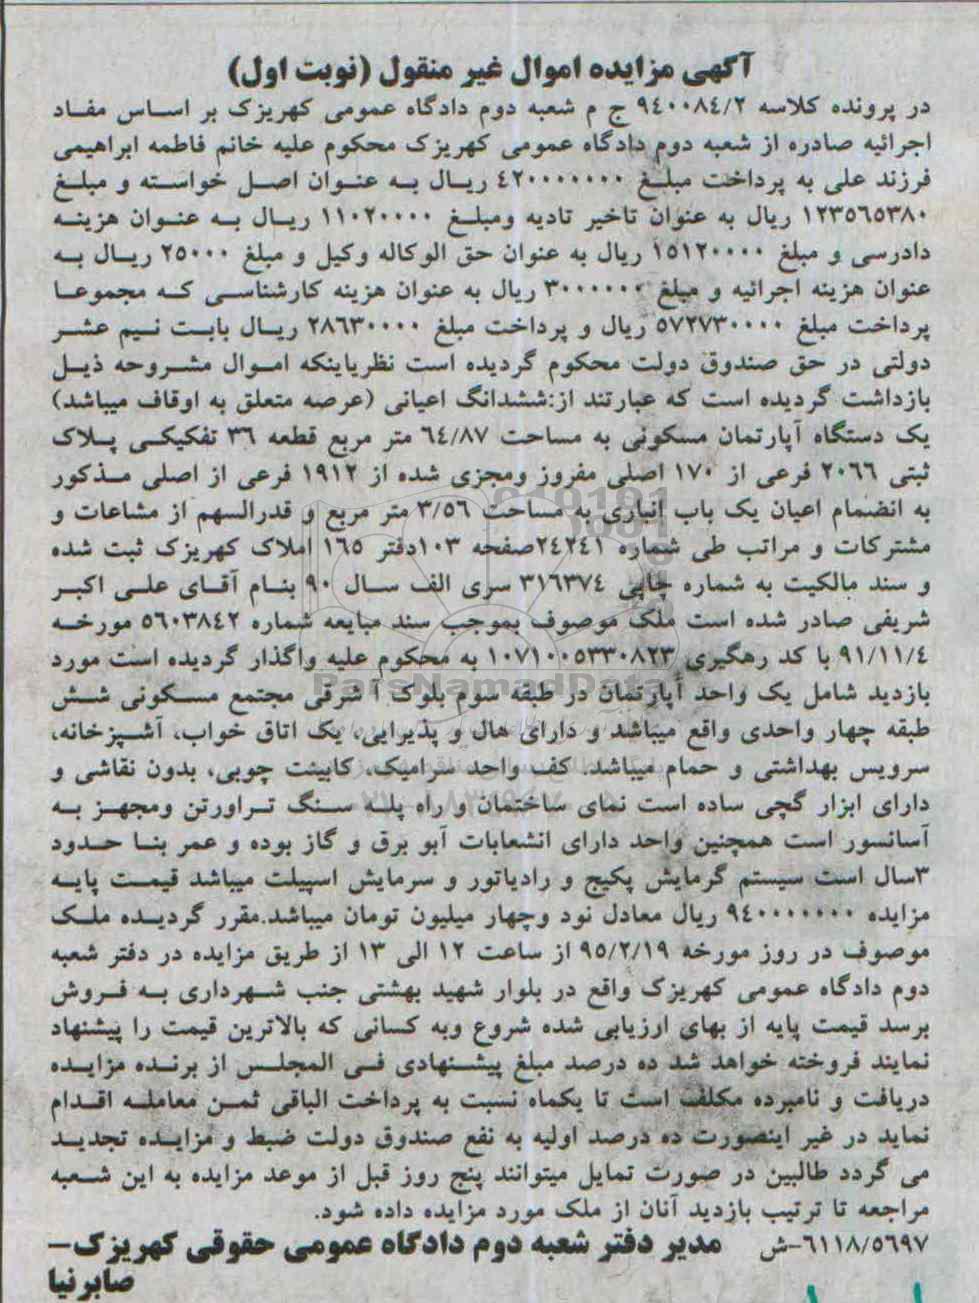 آگهی مزایده اموال غیر منقول (نوبت اول)
در پرونده کلاسه ۹۴۰۰۸۴/۲ ج م شعبه دوم دادگاه عمومی کهریزک بر اساس مفاد
اجرائیه صادره از شعبه دوم دادگاه عمومی کهریزک محکوم علیه خانم فاطمه ابراهیمی
فرزند علی به پرداخت مبلغ ۴۲۰۰۰۰۰۰۰ ریال به عنوان اصل خواسته و مبلغ
۱۲۳۵۶۵۳۸۰ ریال به عنوان تاخیر تادیه ومبلغ ۱۱۰۲۰۰۰۰ ریال به عنوان هزینه
دادرسی و مبلغ ۱۵۱۲۰۰۰۰ ریال به عنوان حق الوکاله وکیل و مبلغ ۲۵۰۰۰ ریال به
عنوان هزینه اجرائیه و مبلغ ۳۰۰۰۰۰۰ ریال به عنوان هزینه کارشناسی که مجموعا
پرداخت مبلغ ۵۷۲۷۳۰۰۰۰ ریال و پرداخت مبلغ ۲۸۶۳۰۰۰۰ ریال بابت نیم عشر
دولتی در حق صندوق دولت محکوم گردیده است نظرباینکه اموال مشروحه ذیل
بازداشت گردیده است که عبارتند از:ششدانگ اعیانی (عرصه متعلق به اوقاف میباشد)
یک دستگاه آپارتمان مسکونی به مساحت ۶۴/۸۷ متر مربع قطعه ۳۶ تفکیکی پلاک
ثبتی ۲۰۶۶ فرعی از ۱۷۰ اصلی مفروز ومجزی شده از ۱۹۱۲ فرعی از اصلی مذکور
به انضمام اعیان یک باب انباری به مساحت ۳/۵۶ متر مربع و قدرالسهم از مشاعات و
مشترکات و مراتب طی شماره ۲۴۲۴۱صفحه ۱۰۳دفتر ۱۶۵ املاک کهریزک ثبت شده
و سند مالکیت به شماره چاپی ۳۱۶۳۷۴ سری الف سال ۹۰ بنام آقای علی اکبر
شریفی صادر شده است ملک موصوف بموجب سند مبایعه شماره ۵۶۰۳۸۴۲ مورخه
۹۱/۱۱/۴ با کد رهگیری ۱۰۷۱۰۰۵۳۳۰۸۲۳ به محکوم علیه واگذار گردیده است مورد
بازدید شامل یک واحد آپارتمان در طبقه سوم بلوک آ شرقی مجتمع مسکونی شش
طبقه چهار واحدی واقع میباشد و دارای هال و پذیرایی، یک اتاق خواب، آشپزخانه،
سرویس بهداشتی و حمام میباشد. کف واحد سرامیک، کابینت چوبی، بدون نقاشی و
دارای ابزار گچی ساده است نمای ساختمان و راه پله سنگ تراورتن ومجهز به
آسانسور است همچنین واحد دارای انشعابات آبو برق و گاز بوده و عمر بنا حدود
۳سال است سیستم گرمایش پکیج و رادیاتور و سرمایش اسپیلت میباشد قیمت پایه
مزایده ۹۴۰۰۰۰۰۰۰ ریال معادل نود وچهار میلیون تومان میباشد.مقرر گردیده ملک
موصوف در روز مورخه ۹۵/۲/۱۹ از ساعت ۱۲ الی ۱۳ از طریق مزایده در دفتر شعبه
دوم دادگاه عمومی کهریزک واقع در بلوار شهید بهشتی جنب شهرداری به فروش
برسد قیمت پایه از بهای ارزیابی شده شروع وبه کسانی که بالاترین قیمت را پیشنهاد
نمایند فروخته خواهد شد ده درصد مبلغ پیشنهادی فی المجلس از برنده مزایده
دریافت و نامبرده مکلف است تا یکماه نسبت به پرداخت الباقی ثمن معامله اقدام
نماید در غیر اینصورت ده درصد اولیه به نفع صندوق دولت ضبط و مزایده تجدید
می گردد طالبین در صورت تمایل میتوانند پنج روز قبل از موعد مزایده به این شعبه
مراجعه تا ترتیب بازدید آنان از ملک مورد مزایده داده شود.
۶۱۱۸/۵۶۹۷-ش مدیر دفتر شعبه دوم دادگاه عمومی حقوقی کهریزک-
صابرنیا
ParsNamadData